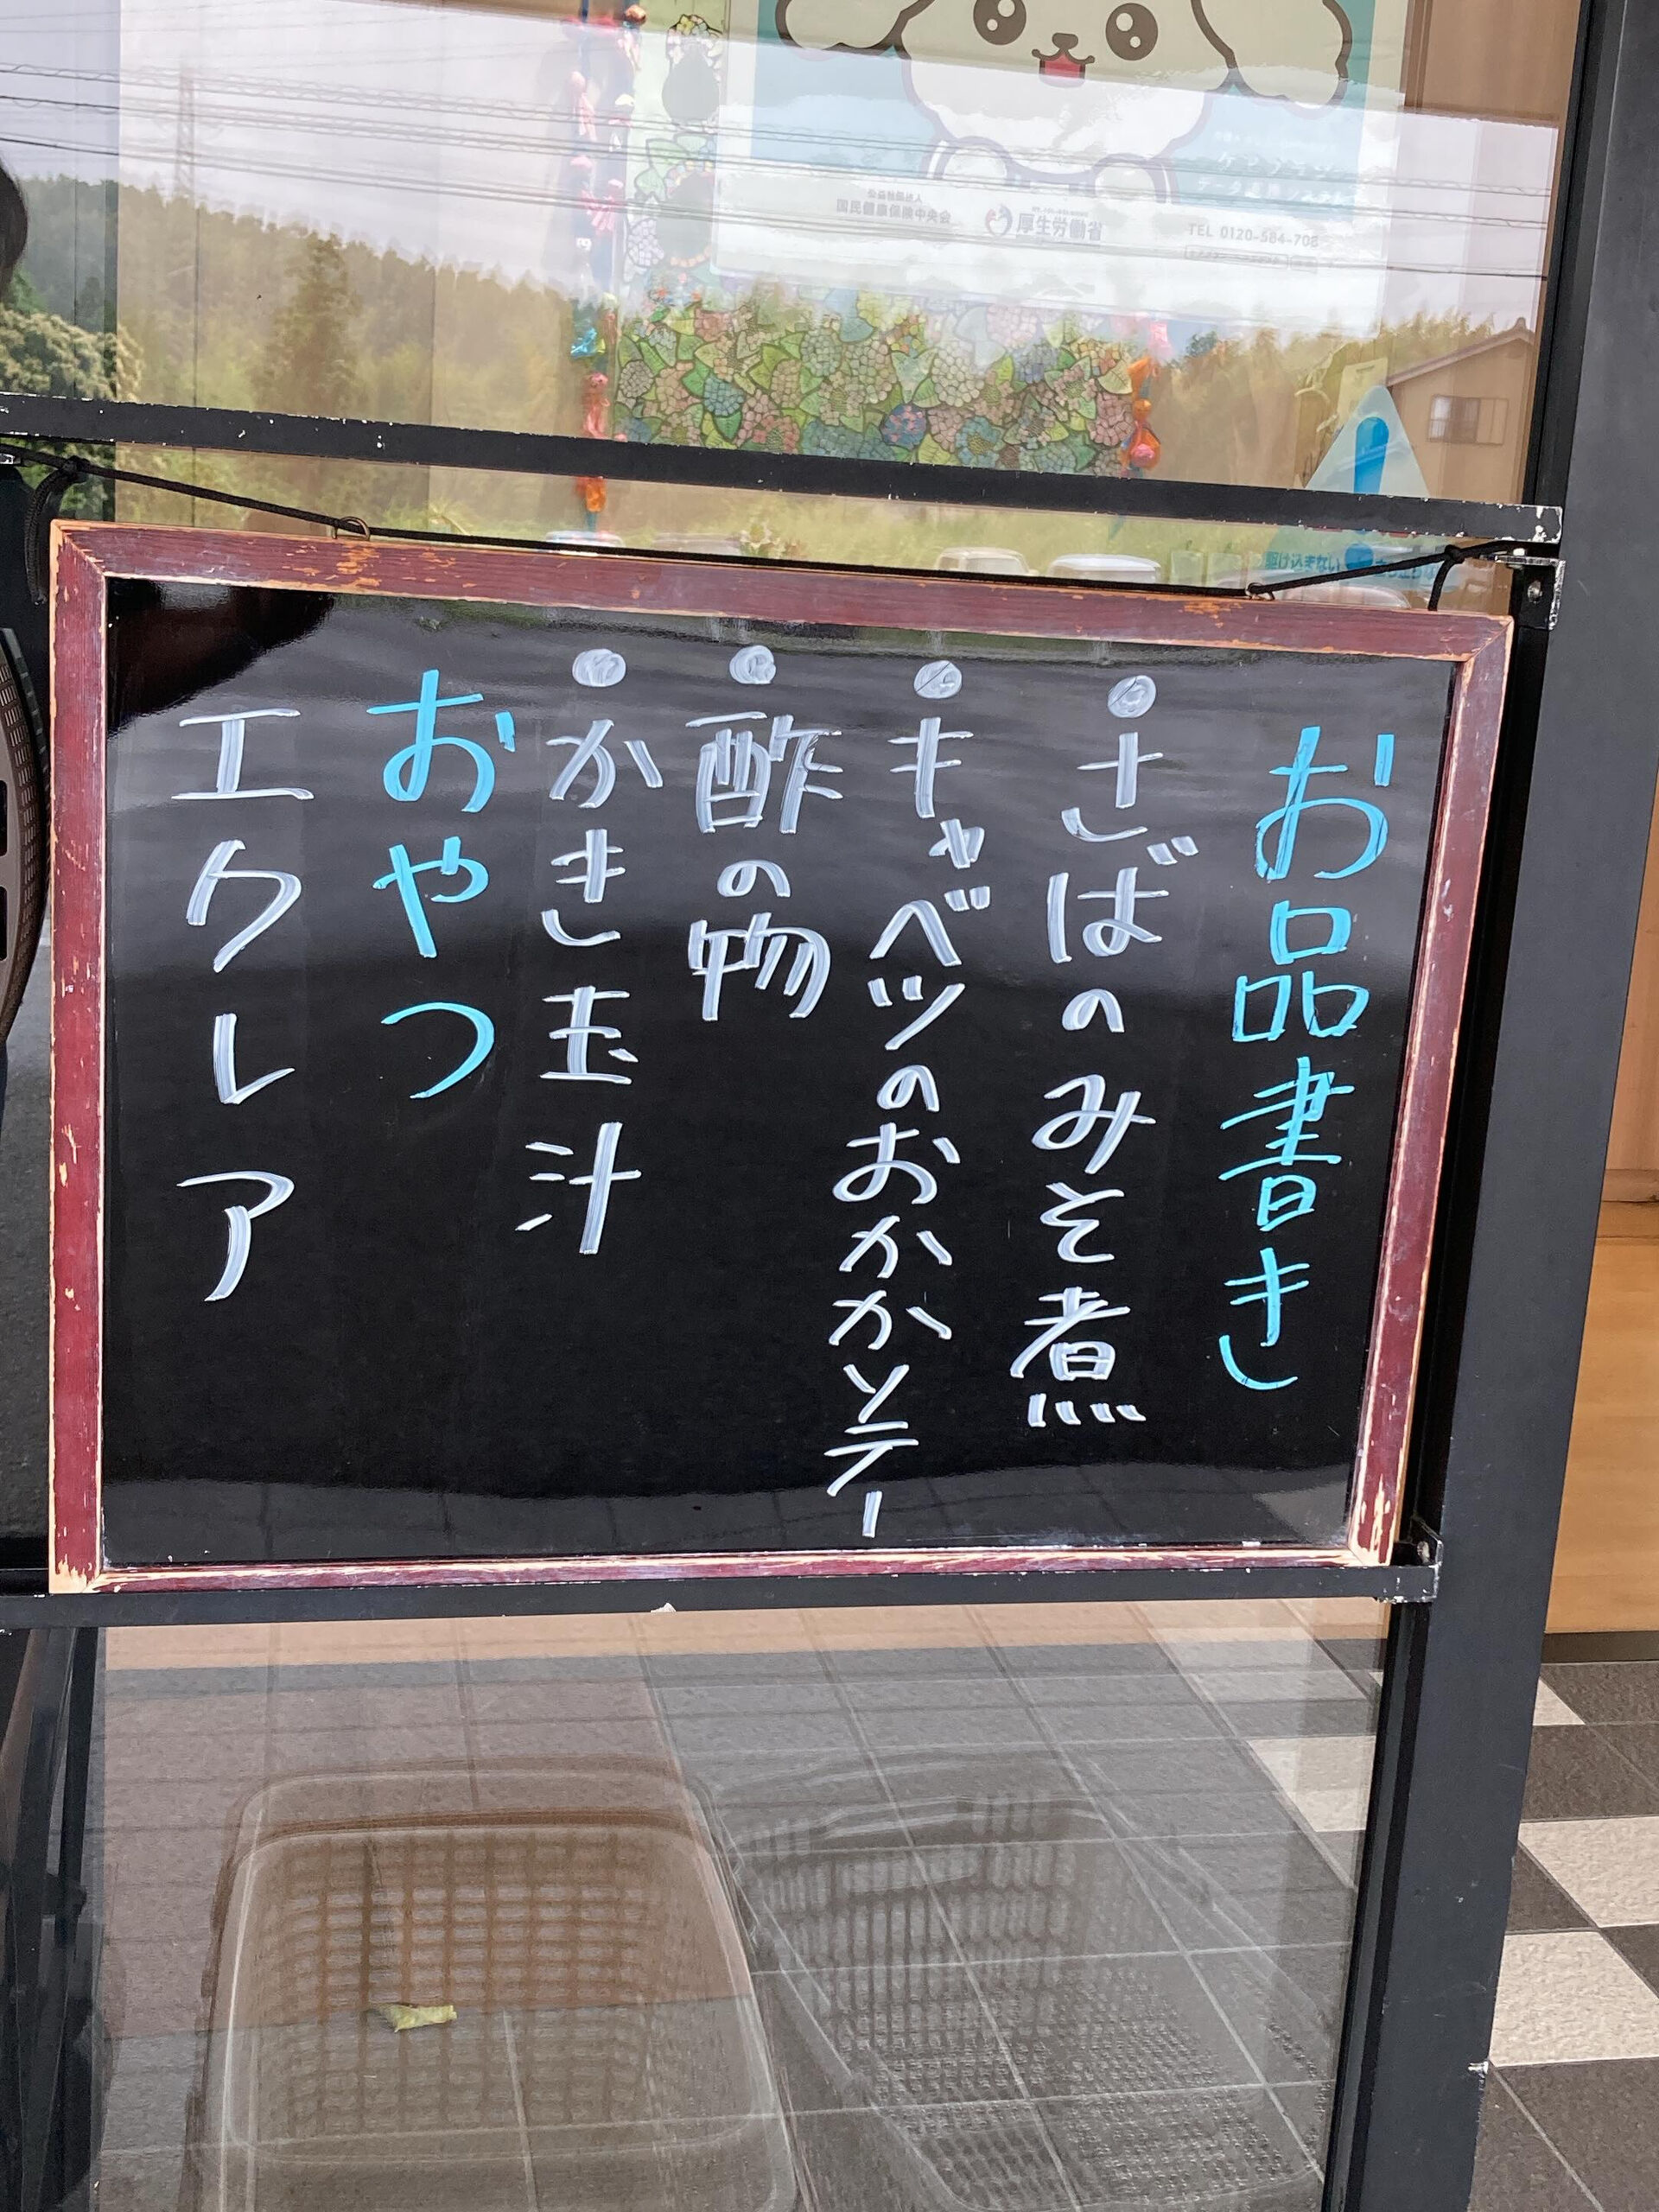 公益社団法人
国民健康保険中央会
厚生労働省
TEL 0120-584-708
お品書き
・さばのみそ煮
・キャベツのおかかソテー
・酢の物
・かき玉汁
おやつ
エクレア